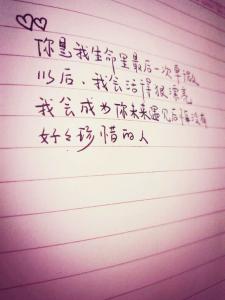 你是我生命里最后一次卑微
以后，我会活得很漂亮
我会成为你未来遇见后悔没有
好好珍惜的人